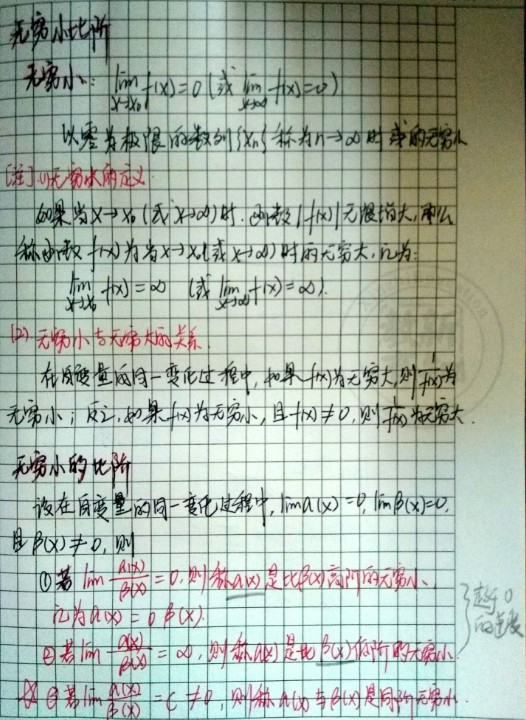 无穷小比阶
无穷小: lim x→x₀ f(x)=0 (或 lim x→∞ f(x)=0)
以零为极限的数列{xn}称为n→∞时的无穷小
[注] (1) 无穷大的定义
如果当x→x₀(或x→∞)时,函数|f(x)|无限增大,那么
称函数f(x)为当x→x₀(或x→∞)时的无穷大,记为:
lim x→x₀ f(x)=∞ (或 lim x→∞ f(x)=∞).
(2) 无穷小与无穷大的关系
在自变量的同一变化过程中,如果f(x)为无穷大,则1/f(x)为
无穷小;反之,如果f(x)为无穷小,且f(x)≠0,则1/f(x)为无穷大.
无穷小的比阶
设在自变量的同一变化过程中,lim α(x)=0, lim β(x)=0,
且β(x)≠0,则
① 若 lim α(x)/β(x) = 0,则称α(x)是比β(x)高阶的无穷小,
记为α(x)=0 β(x).
② 若 lim α(x)/β(x) = ∞,则称α(x)是比β(x)低阶的无穷小
③ 若 lim α(x)/β(x) = c ≠ 0,则称α(x)与β(x)是同阶无穷小.
趋于0
的速度